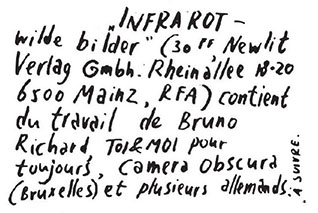 INFRAROT -
wilde bilder" (30 FF, Newlit
Verlag Gmbh. Rheinallee 18-20
6500 Mainz, RFA) contient
du travail de Bruno
Richard, TOI&MOI pour
toujours, Camera Obscura
(Bruxelles) et plusieurs allemands.
A SUIVRE.